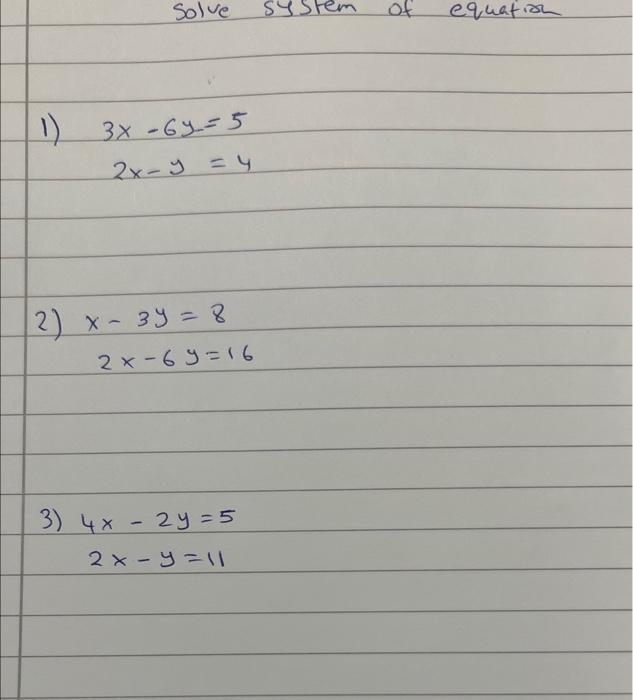 Solve system of equation
1) 3x - 6y = 5
2x - y = 4
2) x - 3y = 8
2x - 6y = 16
3) 4x - 2y = 5
2x - y = 11